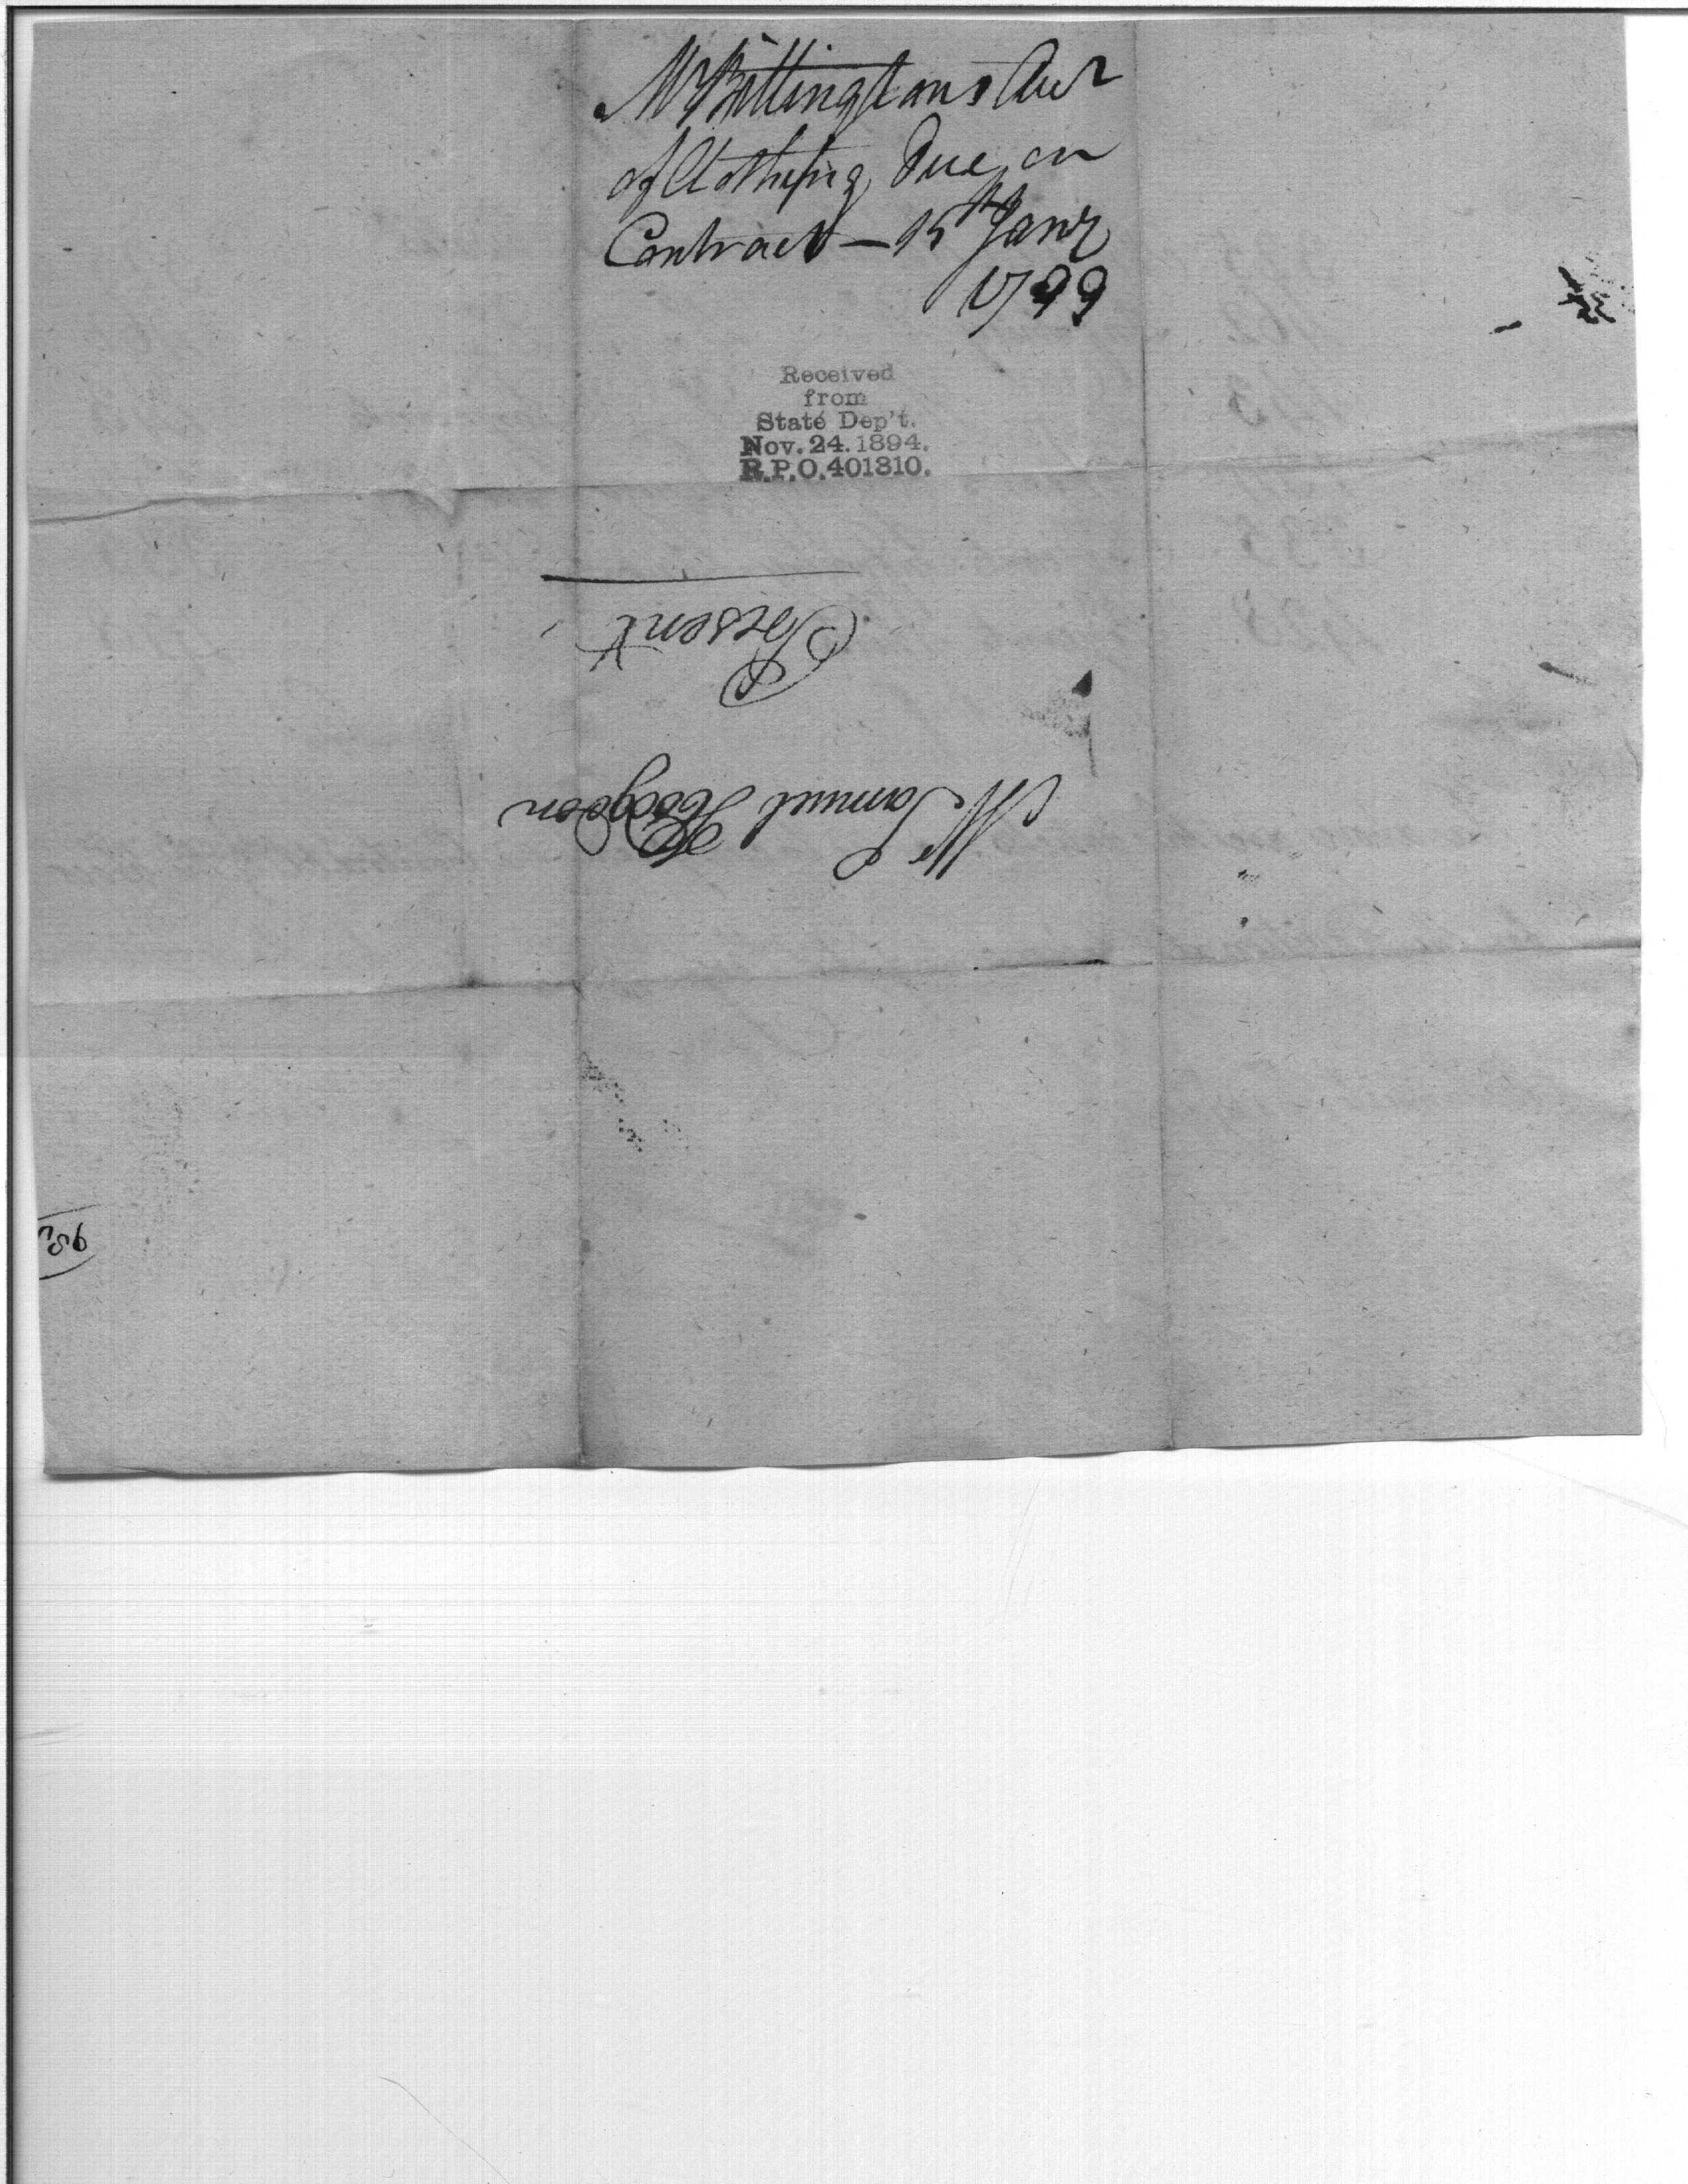 Mr Billingtons Acct
of Clothing due on
Contract — 15th Janr
1799
Received
from
State Dep't.
Nov. 24. 1894.
R.P.O. 401310.
Mr Samuel Hodgdon
Present